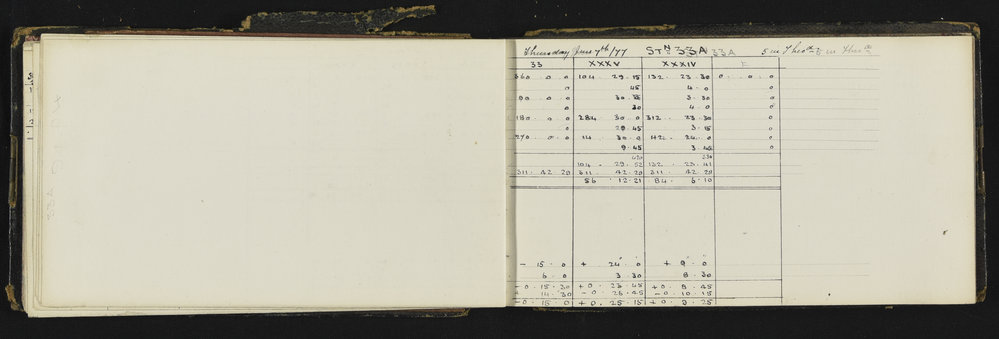 Thursday June 7th/77 STN 33A 33A 5 in Theo. 5 in
33 XXXV XXXIV
360 0 0 104 29.15 132 23 30 0 0 0
0 45 4 0 0
90 0 0 30 3 30 0
0 30 4 0 0
180 0 0 284 30 0 312 23 30 0
0 29 45 3 15 0
270 0 0 14 30 0 42 24 0 0
9 45 3 45 0
104 29.52 132 23 41
311 42 20 311 42 20 311 42 20
86 12.21 84 6 10
- 15 0 + 24 0 + 9 0
6 0 3 30 8 30
-0.15 30 +0 23 45 +0 8 45
+ 14 30 -0 26 45 -0 10 15
-0 15 0 +0 25 15 +0 3 25